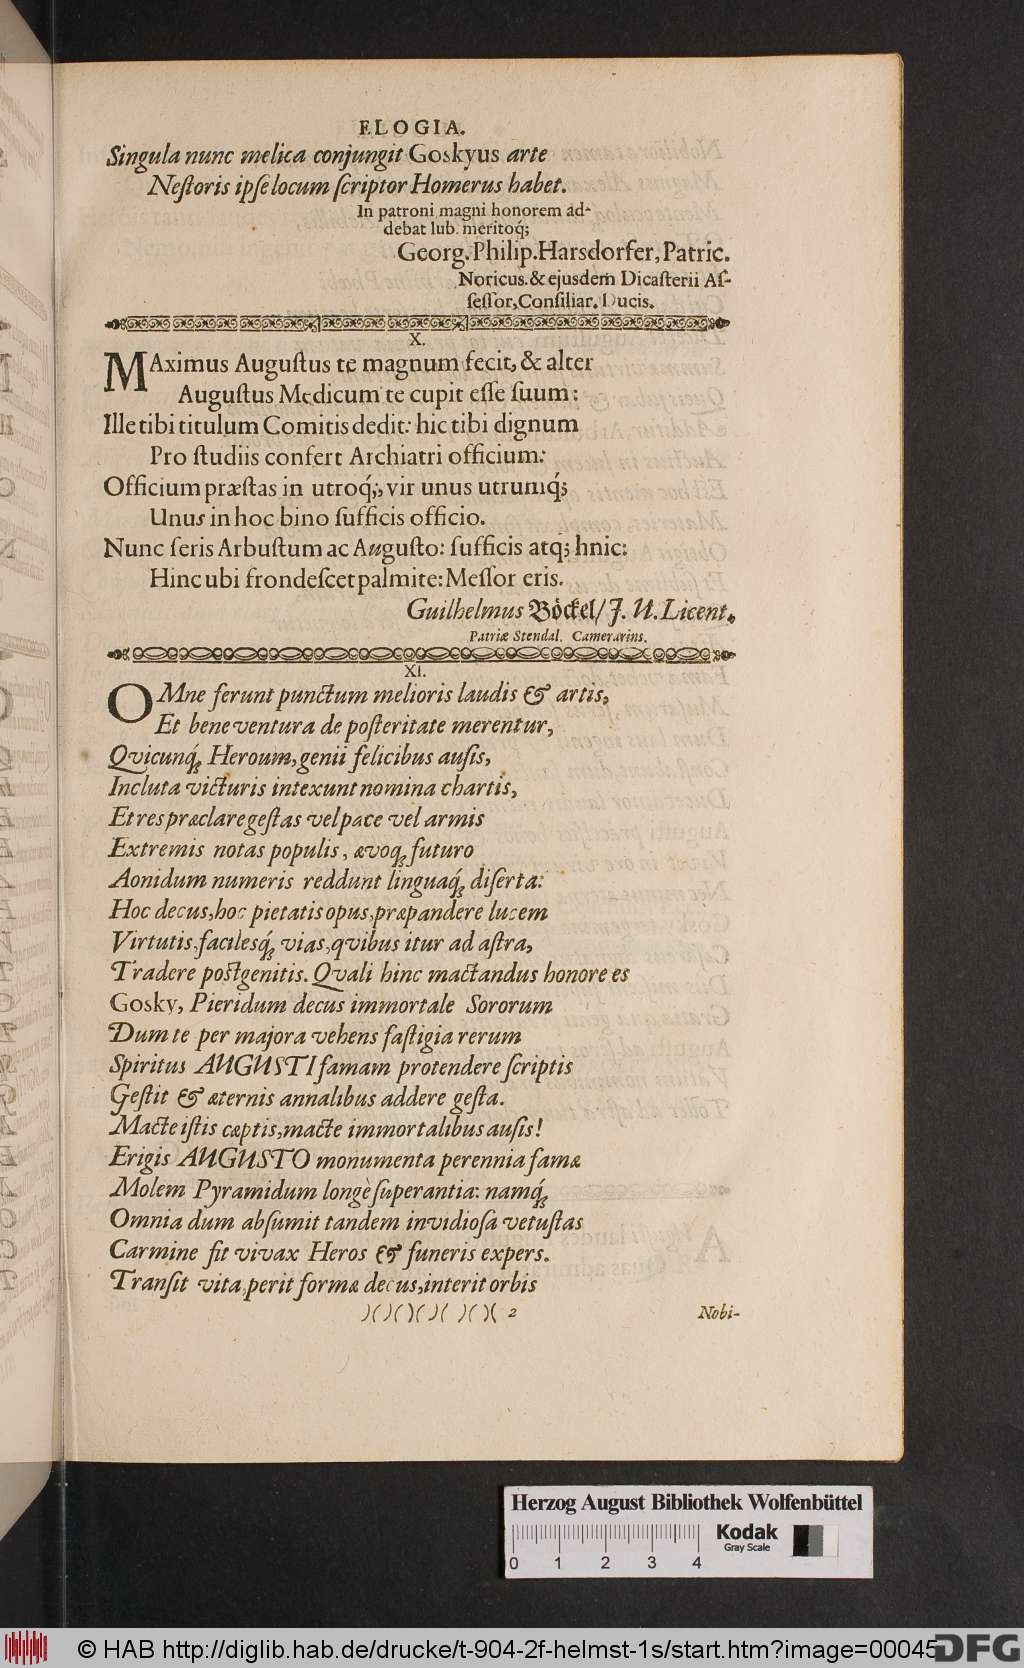 ELOGIA.
Singula nunc melica conjungit Goskyus arte
Neſtoris ipſe locum ſcriptor Homerus habet.
In patroni magni honorem ad-
debat lub. meritoq́;
Georg. Philip. Harsdorfer, Patric.
Noricus. & ejusdem̃ Dicaſterii Aſ-
ſeſſor, Conſiliar. Ducis.
X.
MAximus Auguſtus te magnum fecit, & alter
Auguſtus Medicum te cupit eſſe ſuum:
Ille tibi titulum Comitis dedit: hic tibi dignum
Pro ſtudiis confert Archiatri officium:
Officium præſtas in utroq́;, vir unus utrumq́;
Unus in hoc bino ſufficis officio.
Nunc ſeris Arbuſtum ac Auguſto: ſufficis atq; hnic:
Hinc ubi frondeſcet palmite: Meſſor eris.
Guilhelmus Böckel/ J. U. Licent.
Patriæ Stendal. Camerarius.
XI.
OMne ferunt punctum melioris laudis & artis,
Et bene ventura de poſteritate merentur,
Qvicunq́; Heroum, genii felicibus auſis,
Incluta victuris intexunt nomina chartis,
Et res præclare geſtas vel pace vel armis
Extremis notas populis, ævoq́; futuro
Aonidum numeris reddunt linguaq́; diſerta:
Hoc decus, hoc pietatis opus, præpandere lucem
Virtutis, facilesq́; vias, qvibus itur ad aſtra,
Tradere poſtgenitis. Qvali hinc mactandus honore es
Gosky, Pieridum decus immortale Sororum
Dum te per majora vehens faſtigia rerum
Spiritus AUGUSTI famam protendere ſcriptis
Geſtit & æternis annalibus addere geſta.
Macte iſtis cæptis, macte immortalibus auſis!
Erigis AUGUSTO monumenta perennia famæ
Molem Pyramidum longè ſuperantia: namq́;
Omnia dum abſumit tandem invidioſa vetuſtas
Carmine fit vivax Heros & funeris expers.
Tranſit vita, perit formæ decus, interit orbis
)( )( )( )( )( )( 2 Nobi-
Herzog August Bibliothek Wolfenbüttel
Kodak
Gray Scale
0 1 2 3 4
© HAB http://diglib.hab.de/drucke/t-904-2f-helmst-1s/start.htm?image=00045
DFG